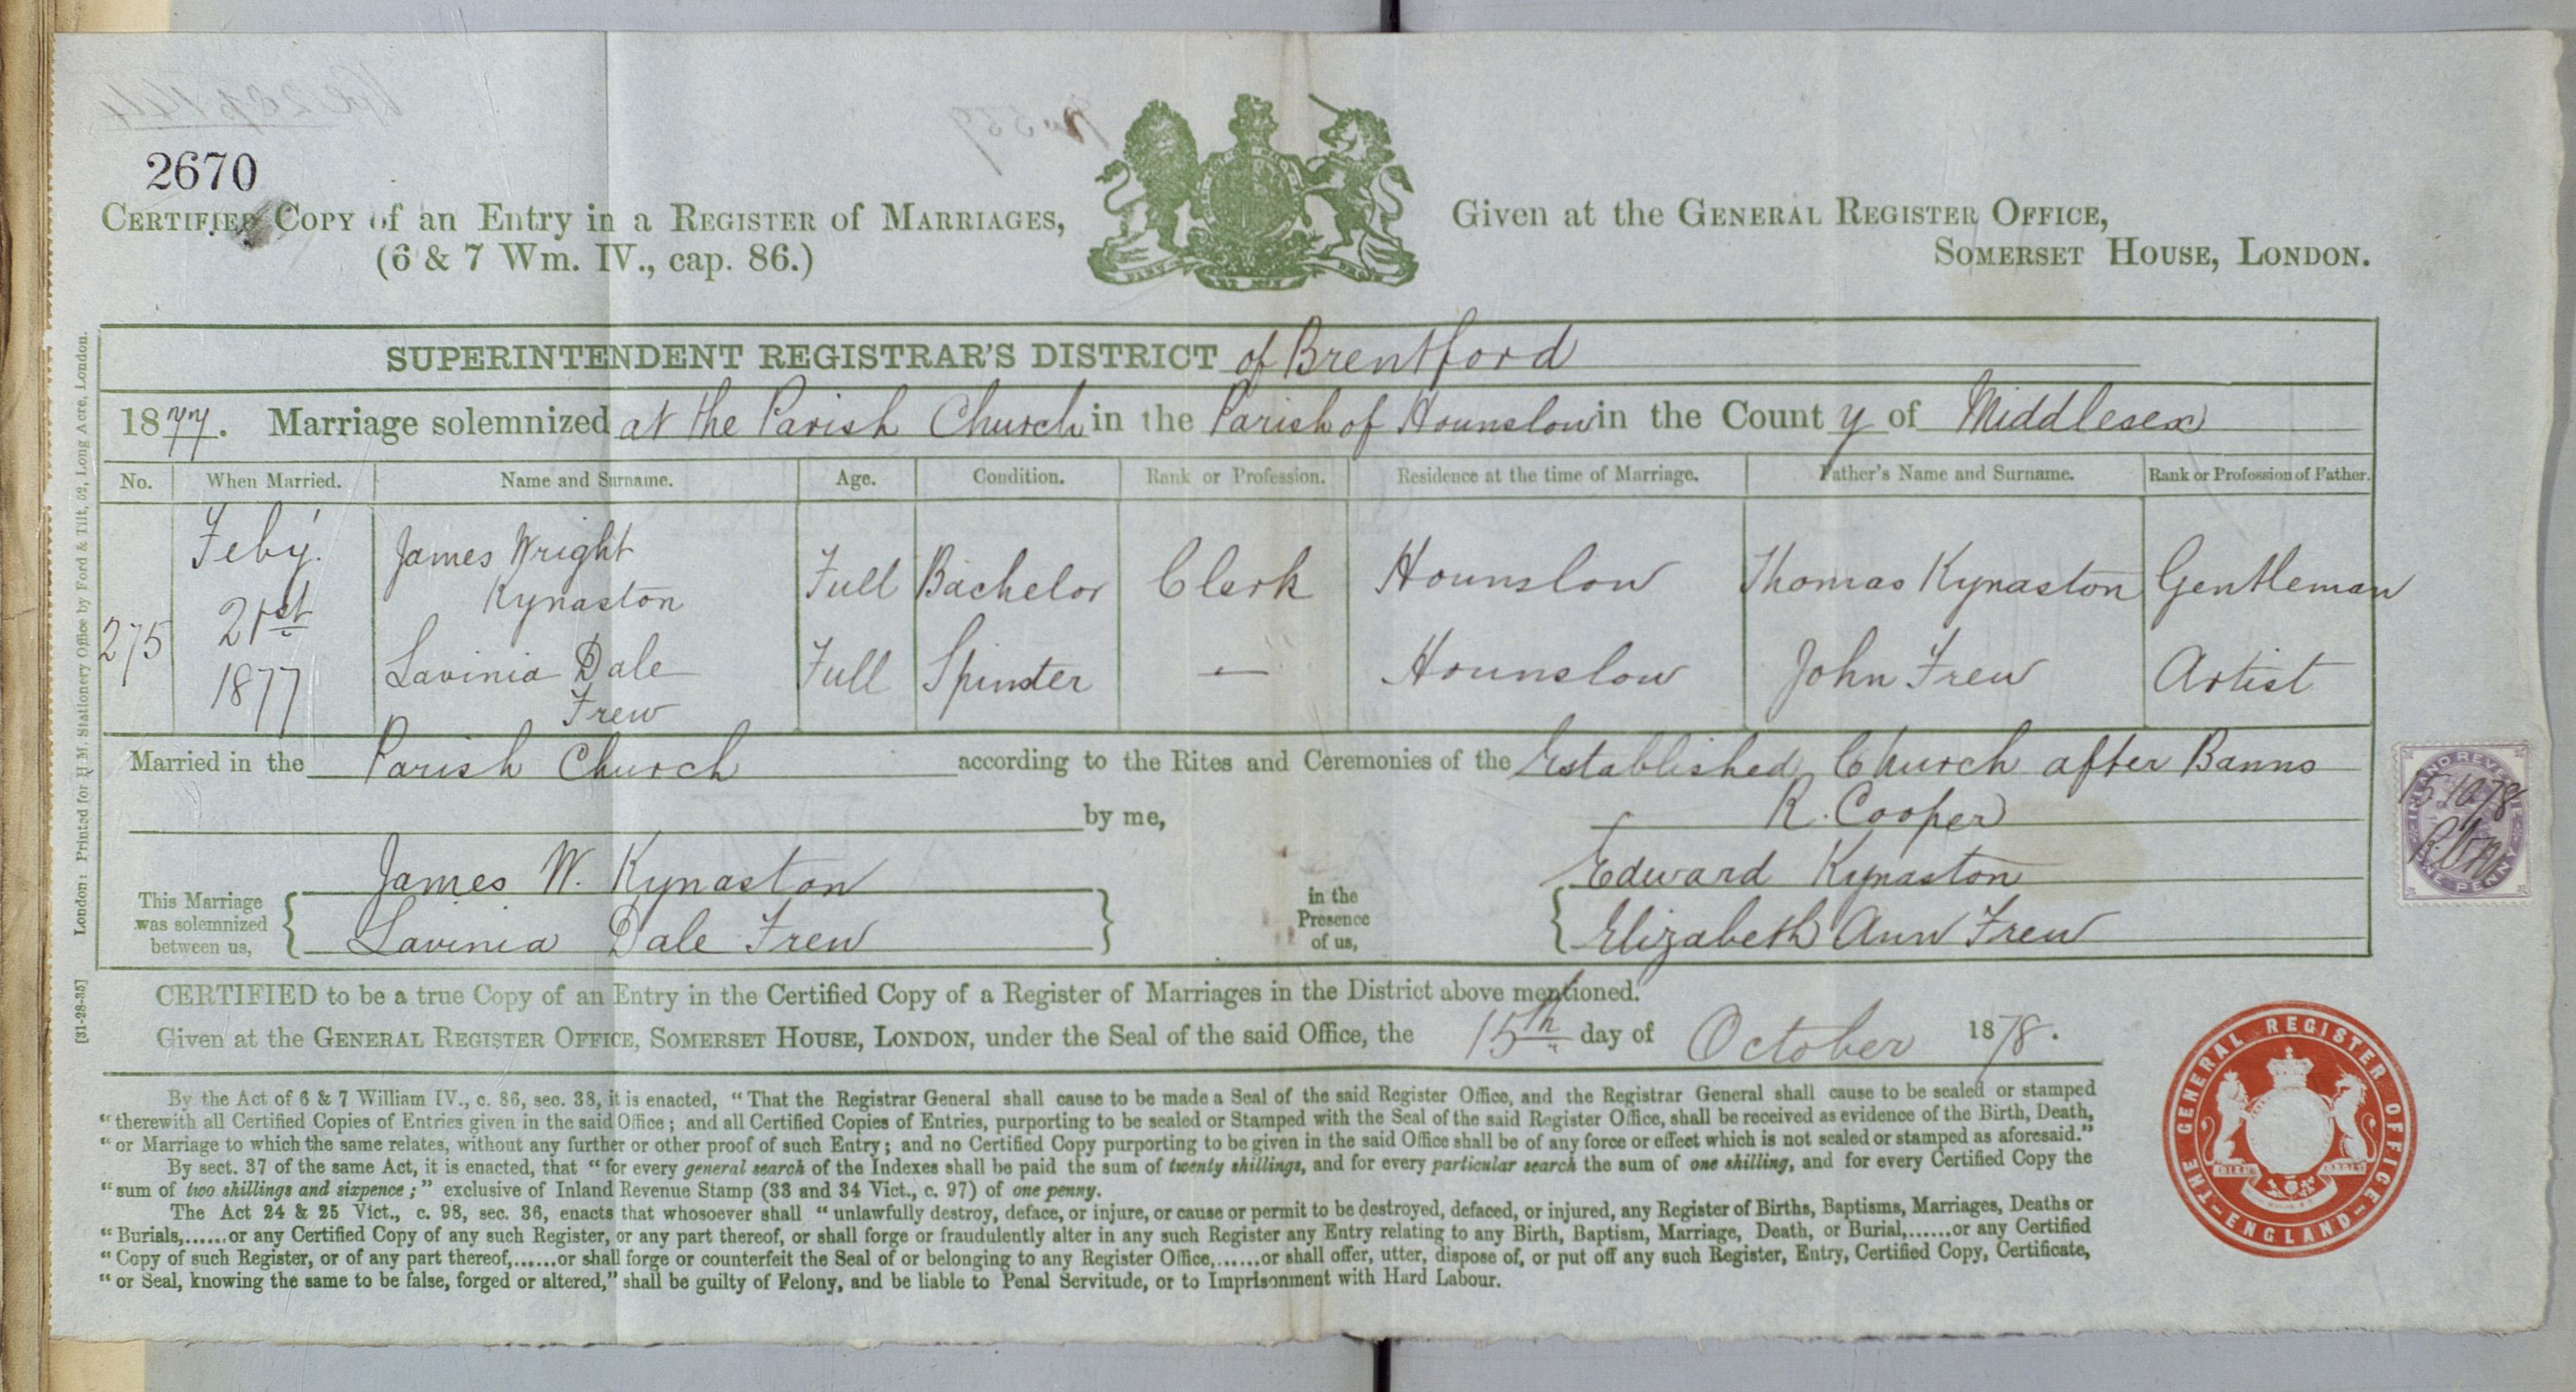 2670
CERTIFIED COPY of an Entry in a REGISTER of MARRIAGES,
(6 & 7 Wm. IV., cap. 86.)
Given at the GENERAL REGISTER OFFICE,
SOMERSET HOUSE, LONDON.
SUPERINTENDENT REGISTRAR'S DISTRICT of Brentford
1877. Marriage solemnized at the Parish Church in the Parish of Hounslow in the County of Middlesex
No. When Married. Name and Surname. Age. Condition. Rank or Profession. Residence at the time of Marriage. Father's Name and Surname. Rank or Profession of Father.
275 Feby. 21st 1877
James Wright Kynaston Full Bachelor Clerk Hounslow Thomas Kynaston Gentleman
Lavinia Dale Frew Full Spinster — Hounslow John Frew Artist
Married in the Parish Church according to the Rites and Ceremonies of the Established Church after Banns
by me, R. Cooper
This Marriage was solemnized between us,
James W. Kynaston
Lavinia Dale Frew
in the Presence of us,
Edward Kynaston
Elizabeth Ann Frew
CERTIFIED to be a true Copy of an Entry in the Certified Copy of a Register of Marriages in the District above mentioned.
Given at the GENERAL REGISTER OFFICE, SOMERSET HOUSE, LONDON, under the Seal of the said Office, the 15th day of October 1878.
By the Act of 6 & 7 William IV., c. 86, sec. 38, it is enacted, "That the Registrar General shall cause to be made a Seal of the said Register Office, and the Registrar General shall cause to be sealed or stamped
"therewith all Certified Copies of Entries given in the said Office; and all Certified Copies of Entries, purporting to be sealed or Stamped with the Seal of the said Register Office, shall be received as evidence of the Birth, Death,
"or Marriage to which the same relates, without any further or other proof of such Entry; and no Certified Copy purporting to be given in the said Office shall be of any force or effect which is not sealed or stamped as aforesaid."
By sect. 37 of the same Act, it is enacted, that "for every general search of the Indexes shall be paid the sum of twenty shillings, and for every particular search the sum of one shilling, and for every Certified Copy the
"sum of two shillings and sixpence;" exclusive of Inland Revenue Stamp (33 and 34 Vict., c. 97) of one penny.
The Act 24 & 25 Vict., c. 98, sec. 36, enacts that whosoever shall "unlawfully destroy, deface, or injure, or cause or permit to be destroyed, defaced, or injured, any Register of Births, Baptisms, Marriages, Deaths or
"Burials,......or any Certified Copy of any such Register, or any part thereof, or shall forge or fraudulently alter in any such Register any Entry relating to any Birth, Baptism, Marriage, Death, or Burial,......or any Certified
"Copy of such Register, or of any part thereof,......or shall forge or counterfeit the Seal of or belonging to any Register Office,......or shall offer, utter, dispose of, or put off any such Register, Entry, Certified Copy, Certificate,
"or Seal, knowing the same to be false, forged or altered," shall be guilty of Felony, and be liable to Penal Servitude, or to Imprisonment with Hard Labour.
[31-28-35] London: Printed for H.M. Stationery Office by Ford & Tilt, 52, Long Acre, London.
INLAND REVENUE
ONE PENNY
15 10 78
THE GENERAL REGISTER OFFICE
ENGLAND